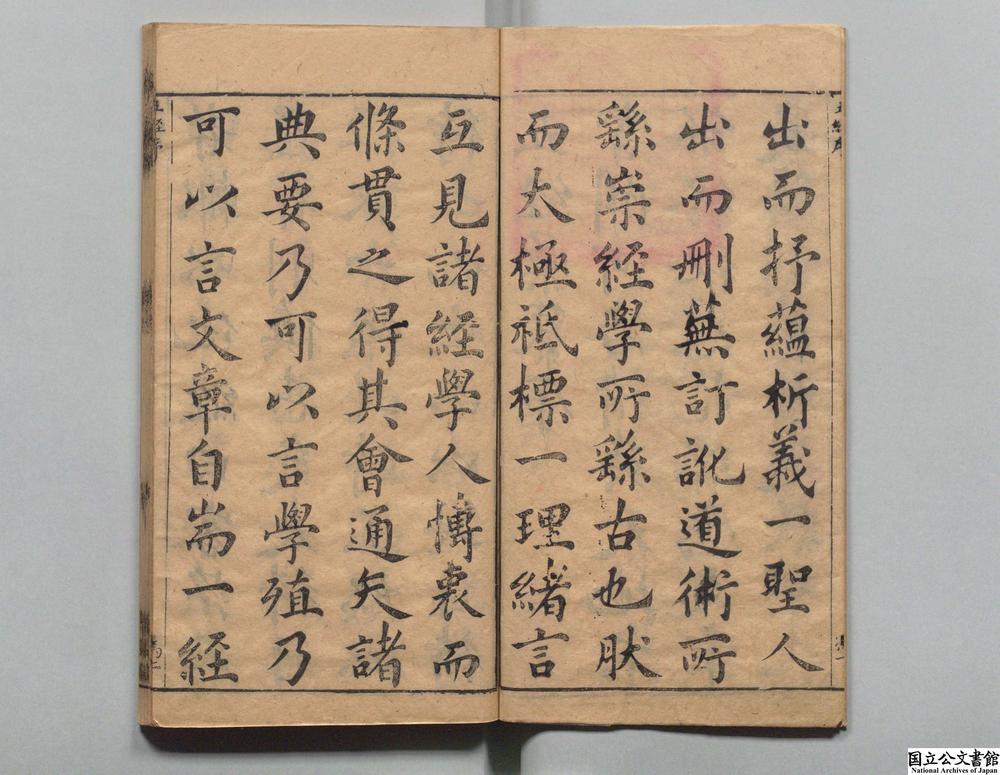 出而抒蘊析義一聖人
出而刪蕪訂訛道術所
繇崇經學所繇古也肰
而太極祗標一理緒言
互見諸經學人博衷而
條貫之得其會通矣諸
典要乃可以言學殖乃
可以言文章自耑一經
国立公文書館
National Archives of Japan